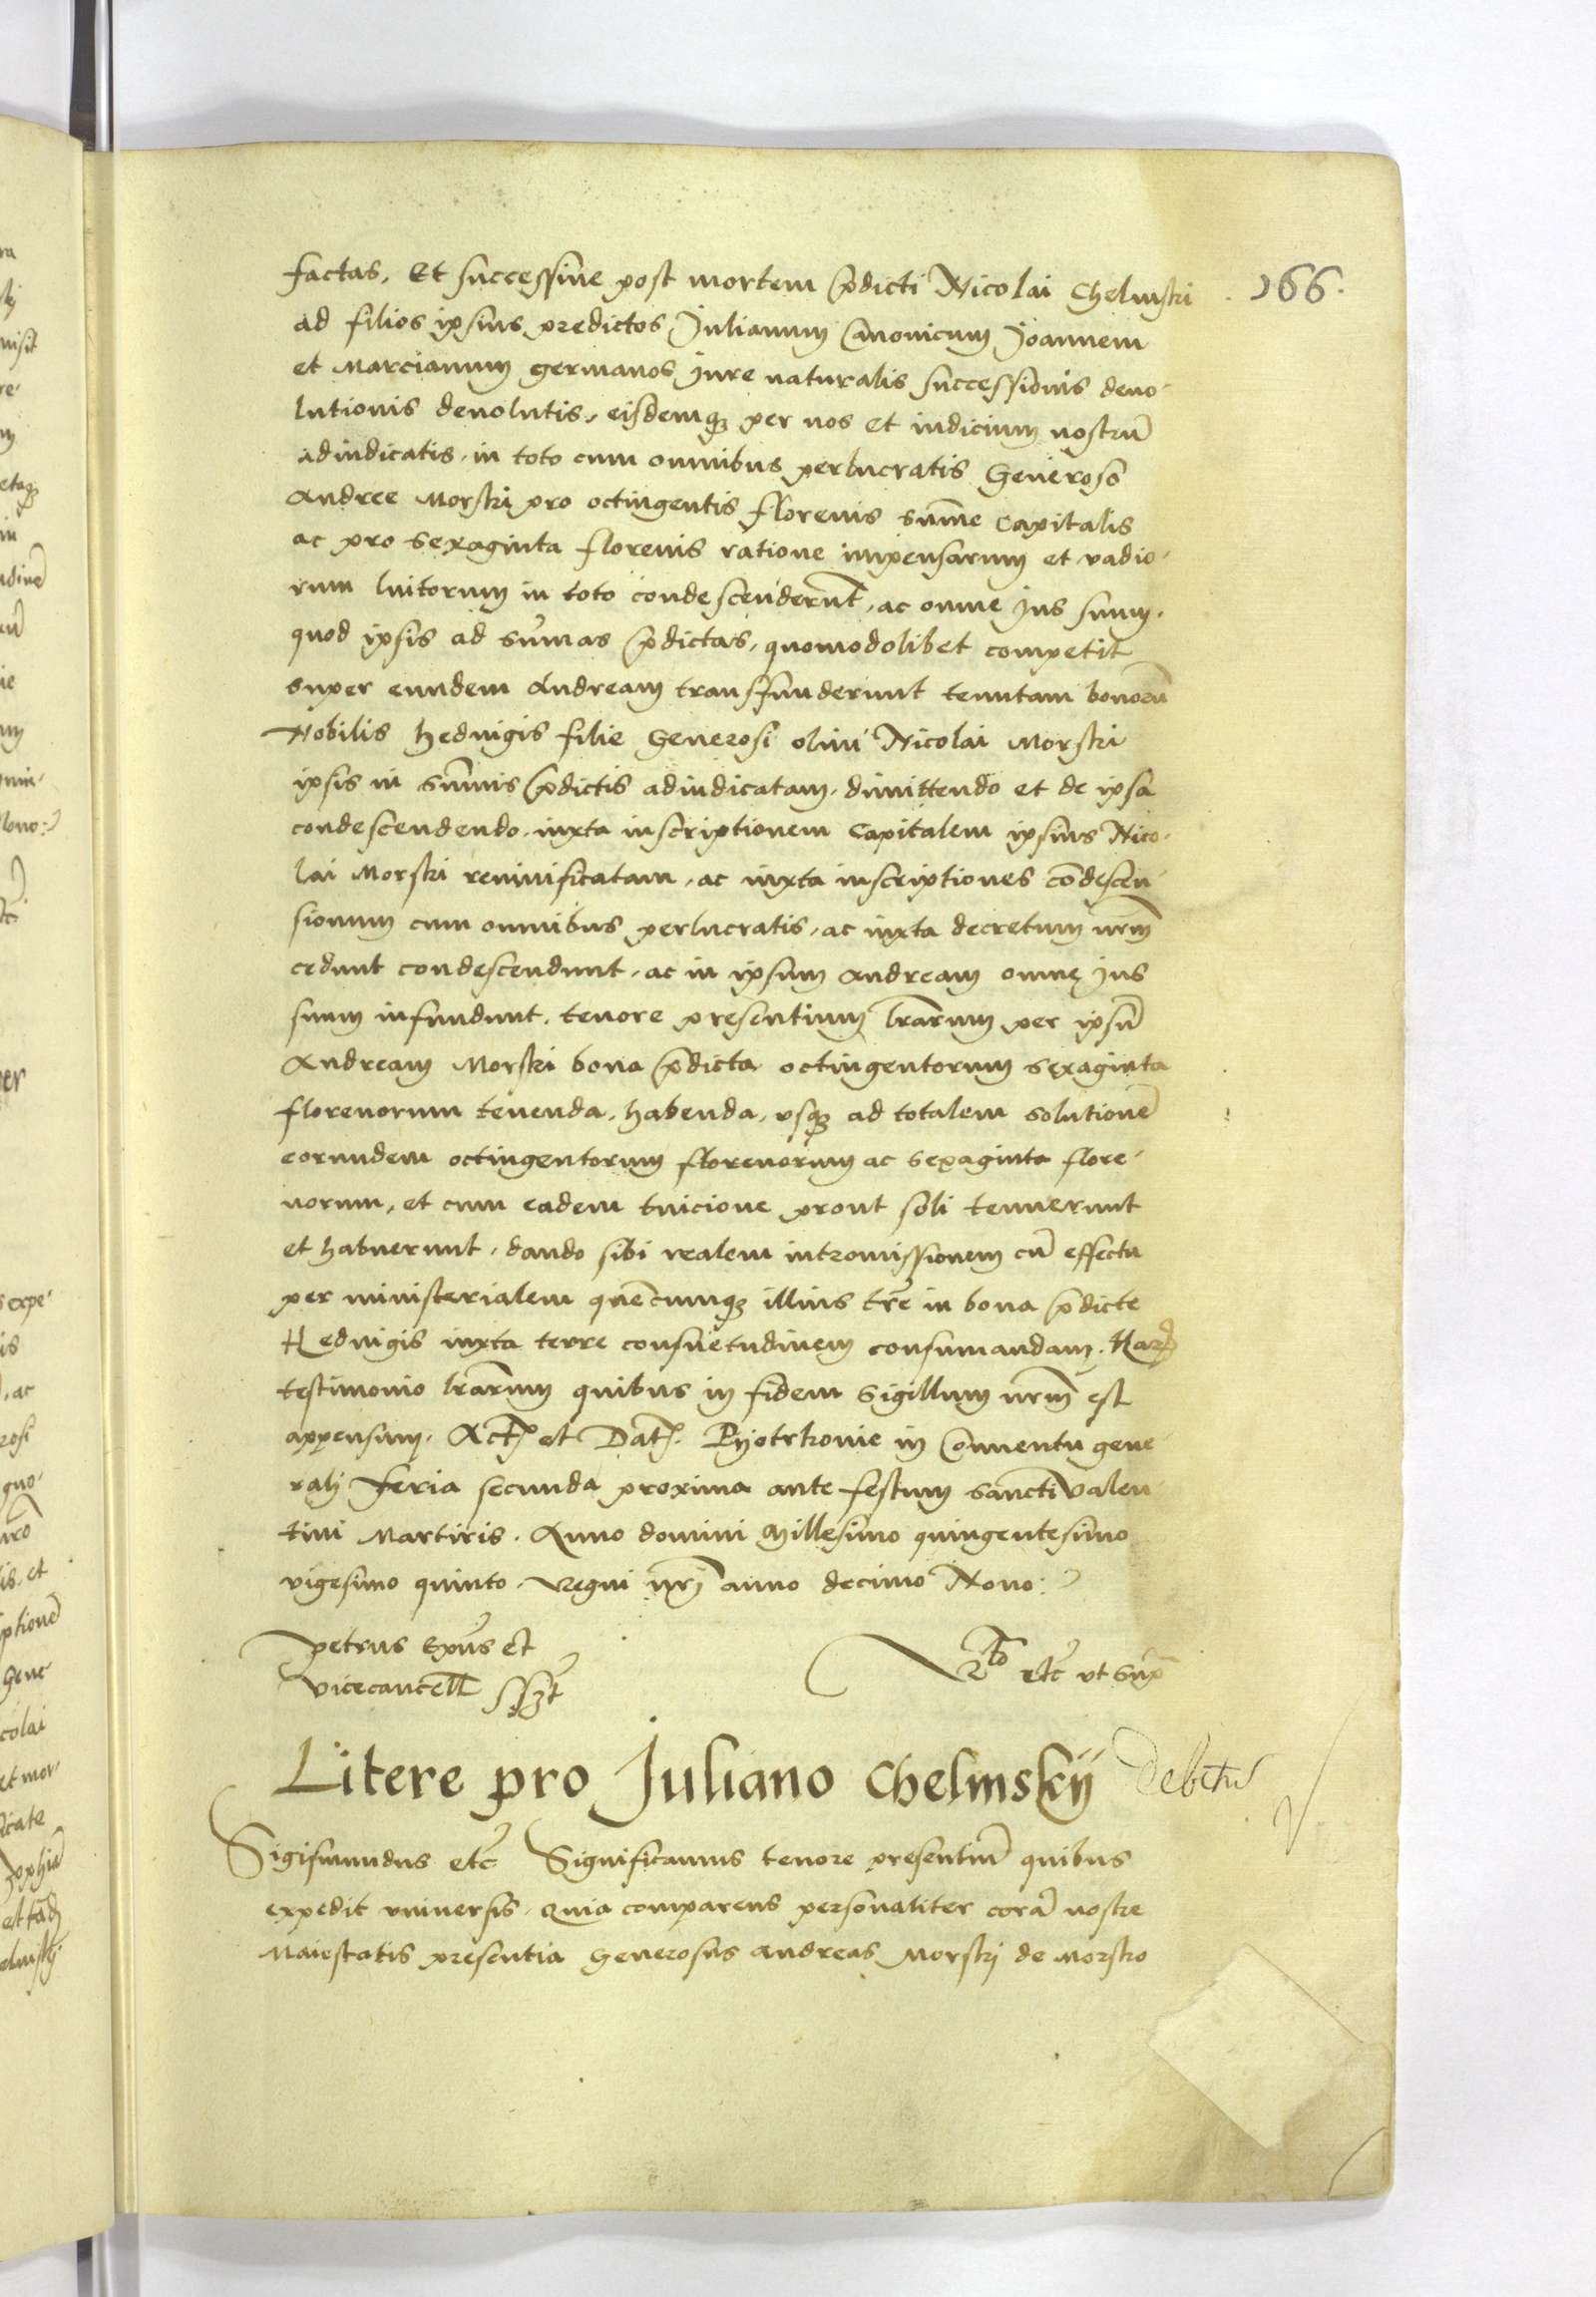 factas, Et successiue post mortem p̄dicti Nicolai Chelmski
166.
ad filios ipsius predictos Julianum Canonicum Joannem
et Marcianum germanos Jure naturalis successionis deuo-
lutionis deuolutis, eisdemq₃ per nos et iudicium nostrū
adiudicatis, in toto cum omnibus perlucratis Generoso
Andree Morski pro octingentis florenis sum̄e Capitalis
ac pro sexaginta florenis ratione impensarum et vadio-
rum luitorum in toto condescenderūt, ac omne Jus suum,
quod ipsis ad sum̄as p̄dictas, quomodolibet competit
super eundem Andream transfunderunt tenutam bonorū
Nobilis Heduigis filie Generosi olim Nicolai Morski
ipsis in sum̄is p̄dictis adiudicatam, dimittendo et de ipsa
condescendendo, iuxta inscriptionem Capitalem ipsius Nico-
lai Morski reuiuificatam, ac iuxta inscriptiones cōdescen-
sionum cum omnibus perlucratis, ac iuxta decretum nr̄m
cedunt condescendunt, ac in ipsum Andream omne Jus
suum infundunt, tenore presentium lr̄arum per ipsū
Andream Morski bona p̄dicta octingentorum sexaginta
florenorum tenenda, habenda, vsq₃ ad totalem solutionē
eorundem octingentorum florenorum ac sexaginta flore-
norum, et cum eadem tuicione prout soli tenuerunt
et habuerunt, dando sibi realem intromissionem cū effectu
per ministerialem quēcumq₃ illius tr̄e in bona p̄dicte
Heduigis iuxta terre consuetudinem consumandam. Harꝝ
testimonio lr̄arum quibus in fidem Sigillum nr̄m est
appensum. Act̄ et Dat̄. Pyotrkouie in Conuentu gene-
rali Feria secunda proxima ante festum Sancti Valen-
tini Martiris. Anno domini Millesimo quingentesimo
vigesimo quinto. Regni nr̄j anno decimo Nono:
petrus Ep̄us et
vicecancell sszt
Rto etc̄ vt Supa
Litere pro Juliano Chelmskij
Sigismundus etc̄ Significamus tenore presentiū quibus
expedit vniuersis. Quia comparens personaliter corā nostre
Maiestatis presentia Generosus Andreas Morskj de Morsko